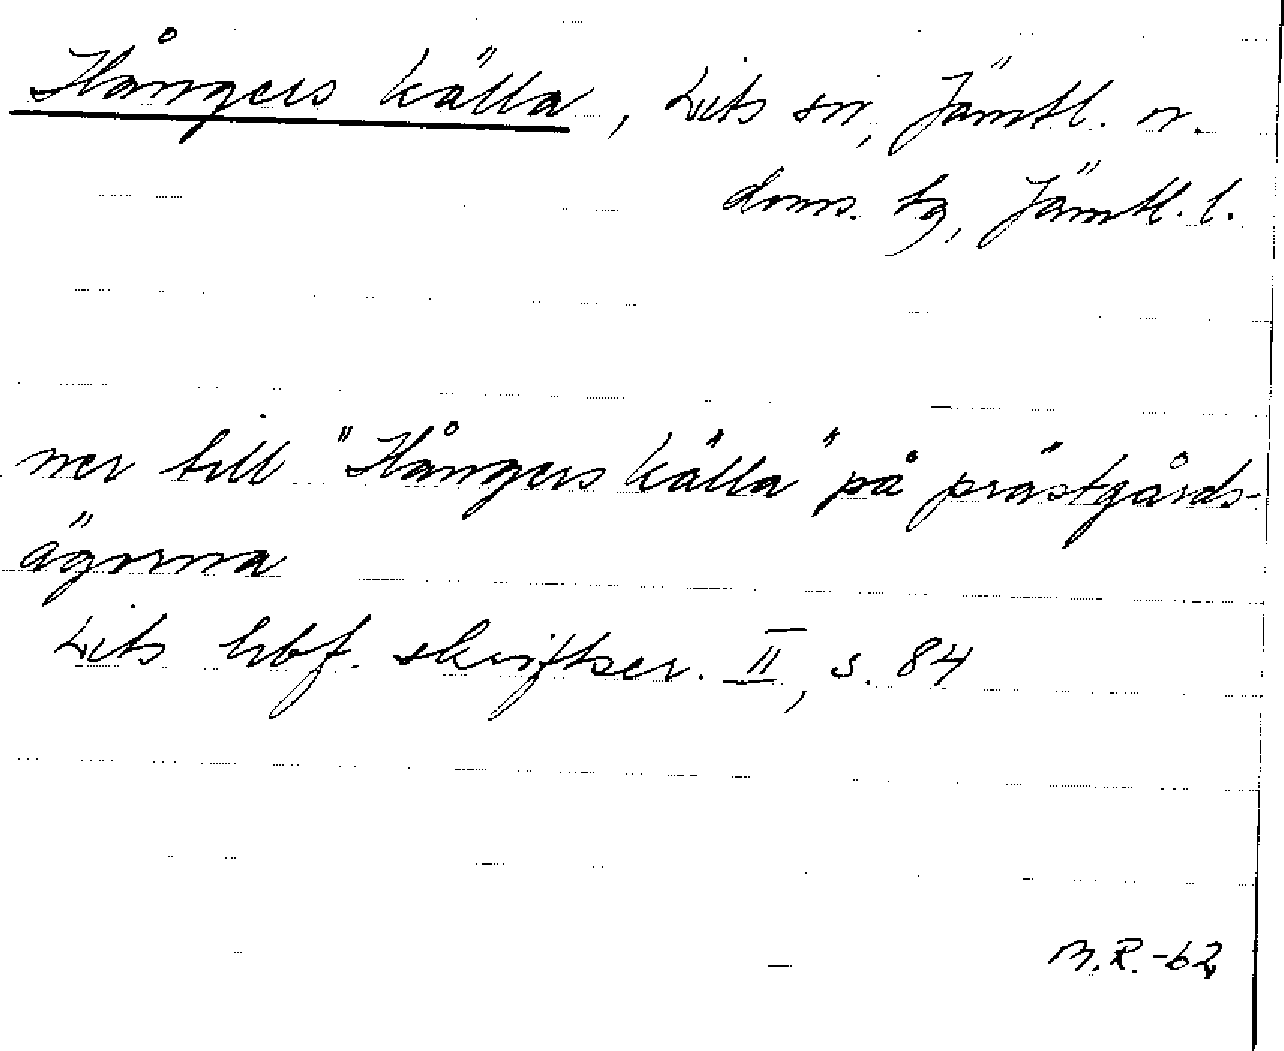 Hångers källa, Lits sn, Jämtl. n.
doms. tg, Jämtl. l.
ner till "Hångers källa" på prästgårds-
ägorna
Lits hbf. skriftser. II, s. 84
M.R.-62